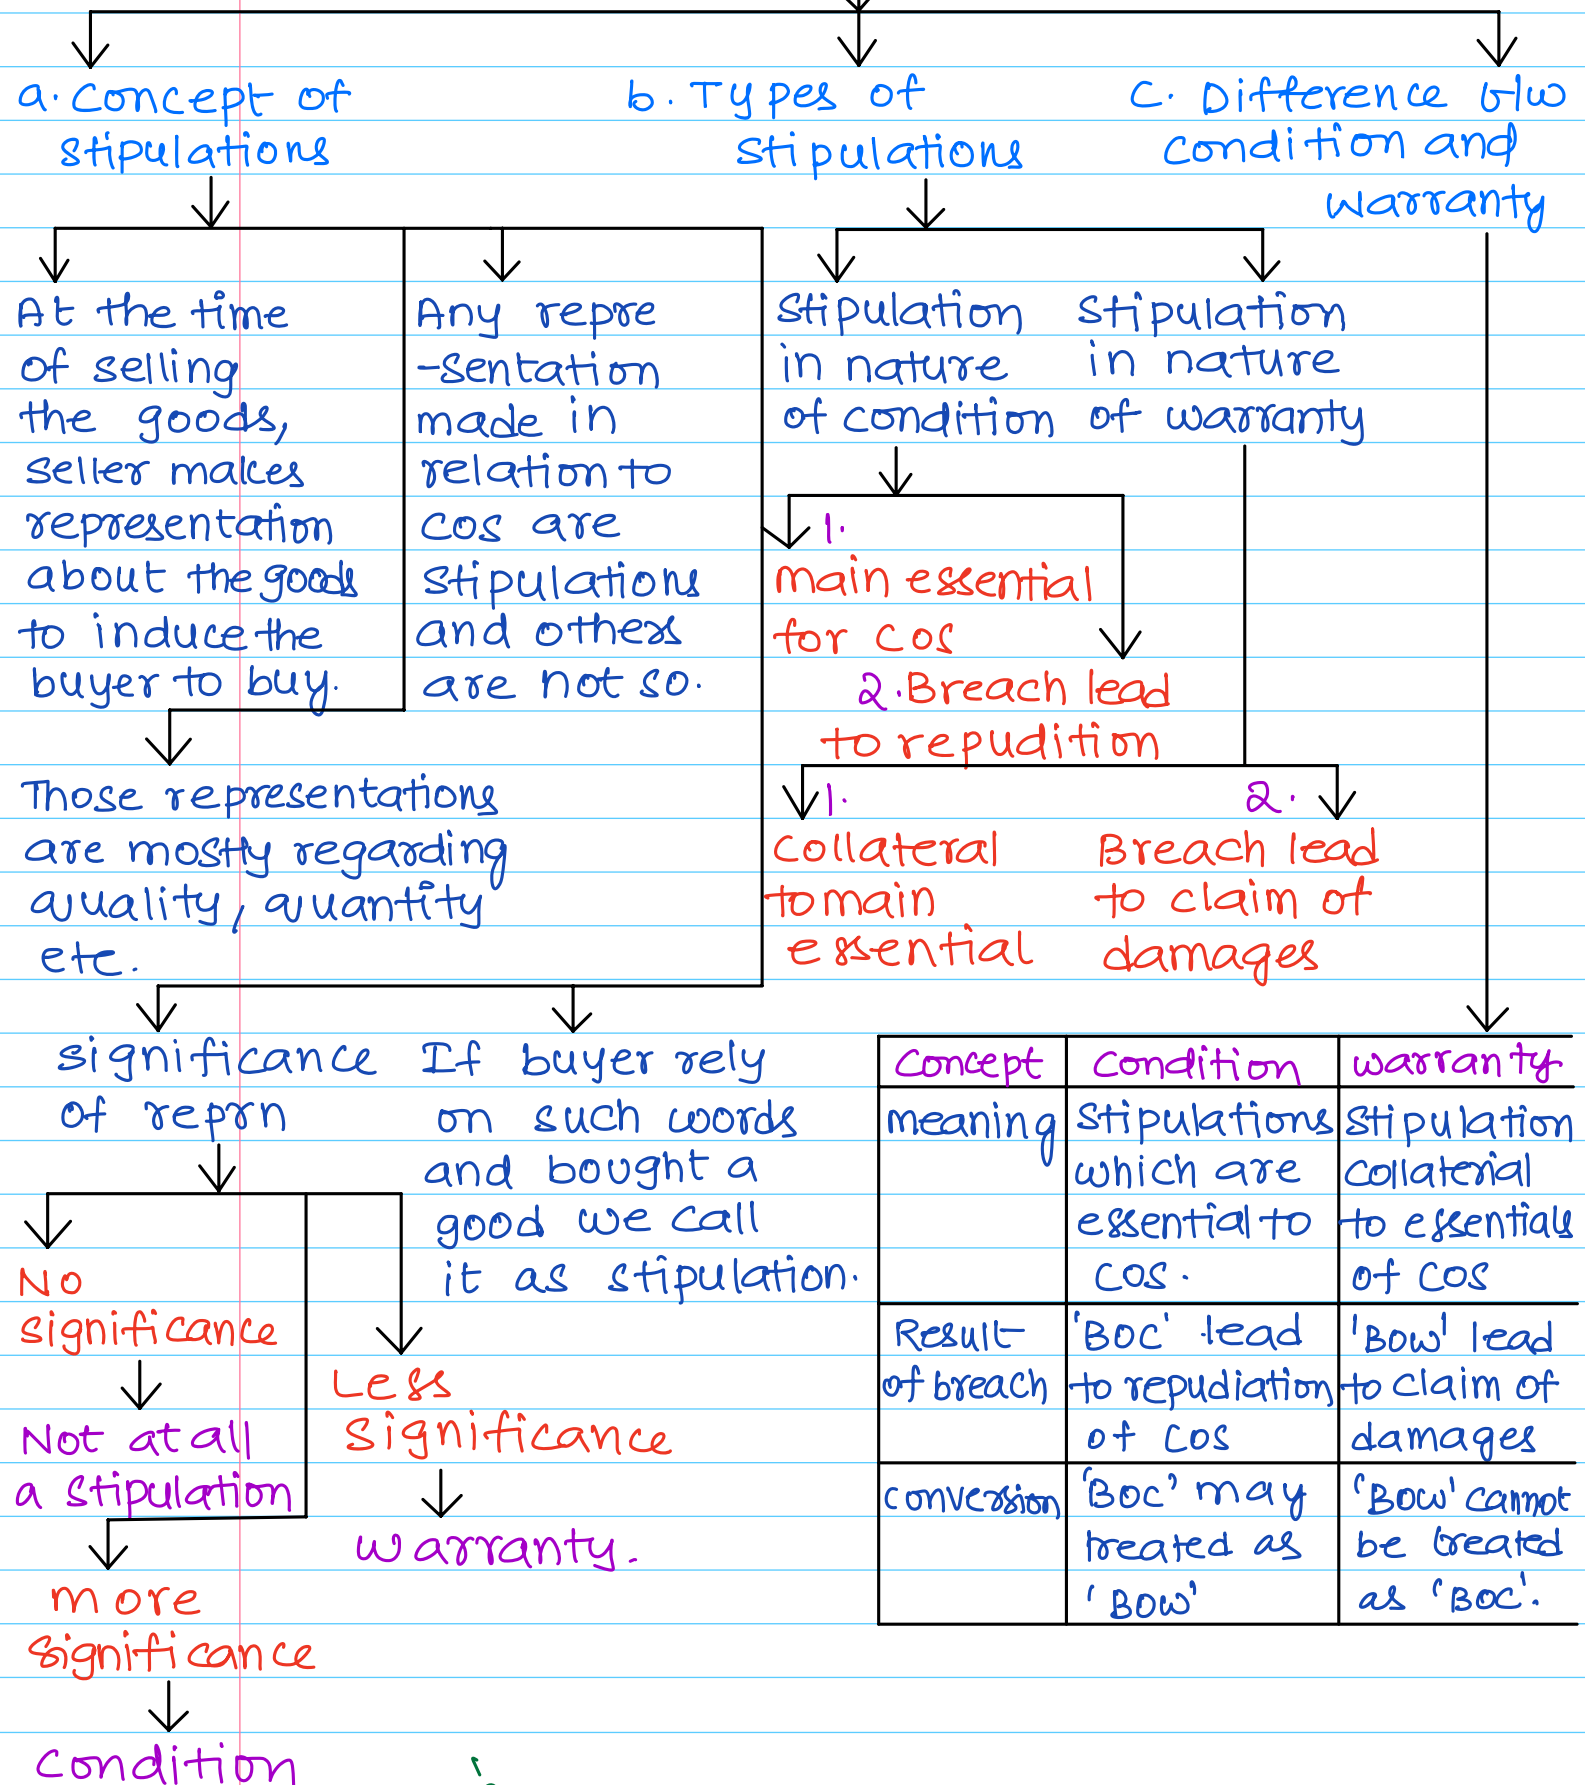 a. Concept of
stipulations
b. Types of
stipulations
C. Difference b/w
condition and
warranty
At the time
of selling
the goods,
seller makes
representation
about the goods
to induce the
buyer to buy.
Any repre
-sentation
made in
relation to
COS are
stipulations
and others
are not so.
Those representations
are mostly regarding
quality, quantity
etc.
significance
of reprn
No
significance
Not at all
a stipulation
more
significance
condition
Less
significance
warranty.
If buyer rely
on such words
and bought a
good we call
it as stipulation.
Stipulation
in nature
of condition
Stipulation
in nature
of warranty
1.
main essential
for COS
2. Breach lead
to repudition
1.
collateral
to main
essential
2.
Breach lead
to claim of
damages
Concept
Condition
warranty
meaning
stipulations
which are
essential to
COS.
stipulation
collaterial
to essentials
of COS
Result
of breach
'BOC' lead
to repudiation
of COS
'BOW' lead
to claim of
damages
conversion
'BOC' may
treated as
'BOW'
'BOW' cannot
be treated
as 'BOC'.